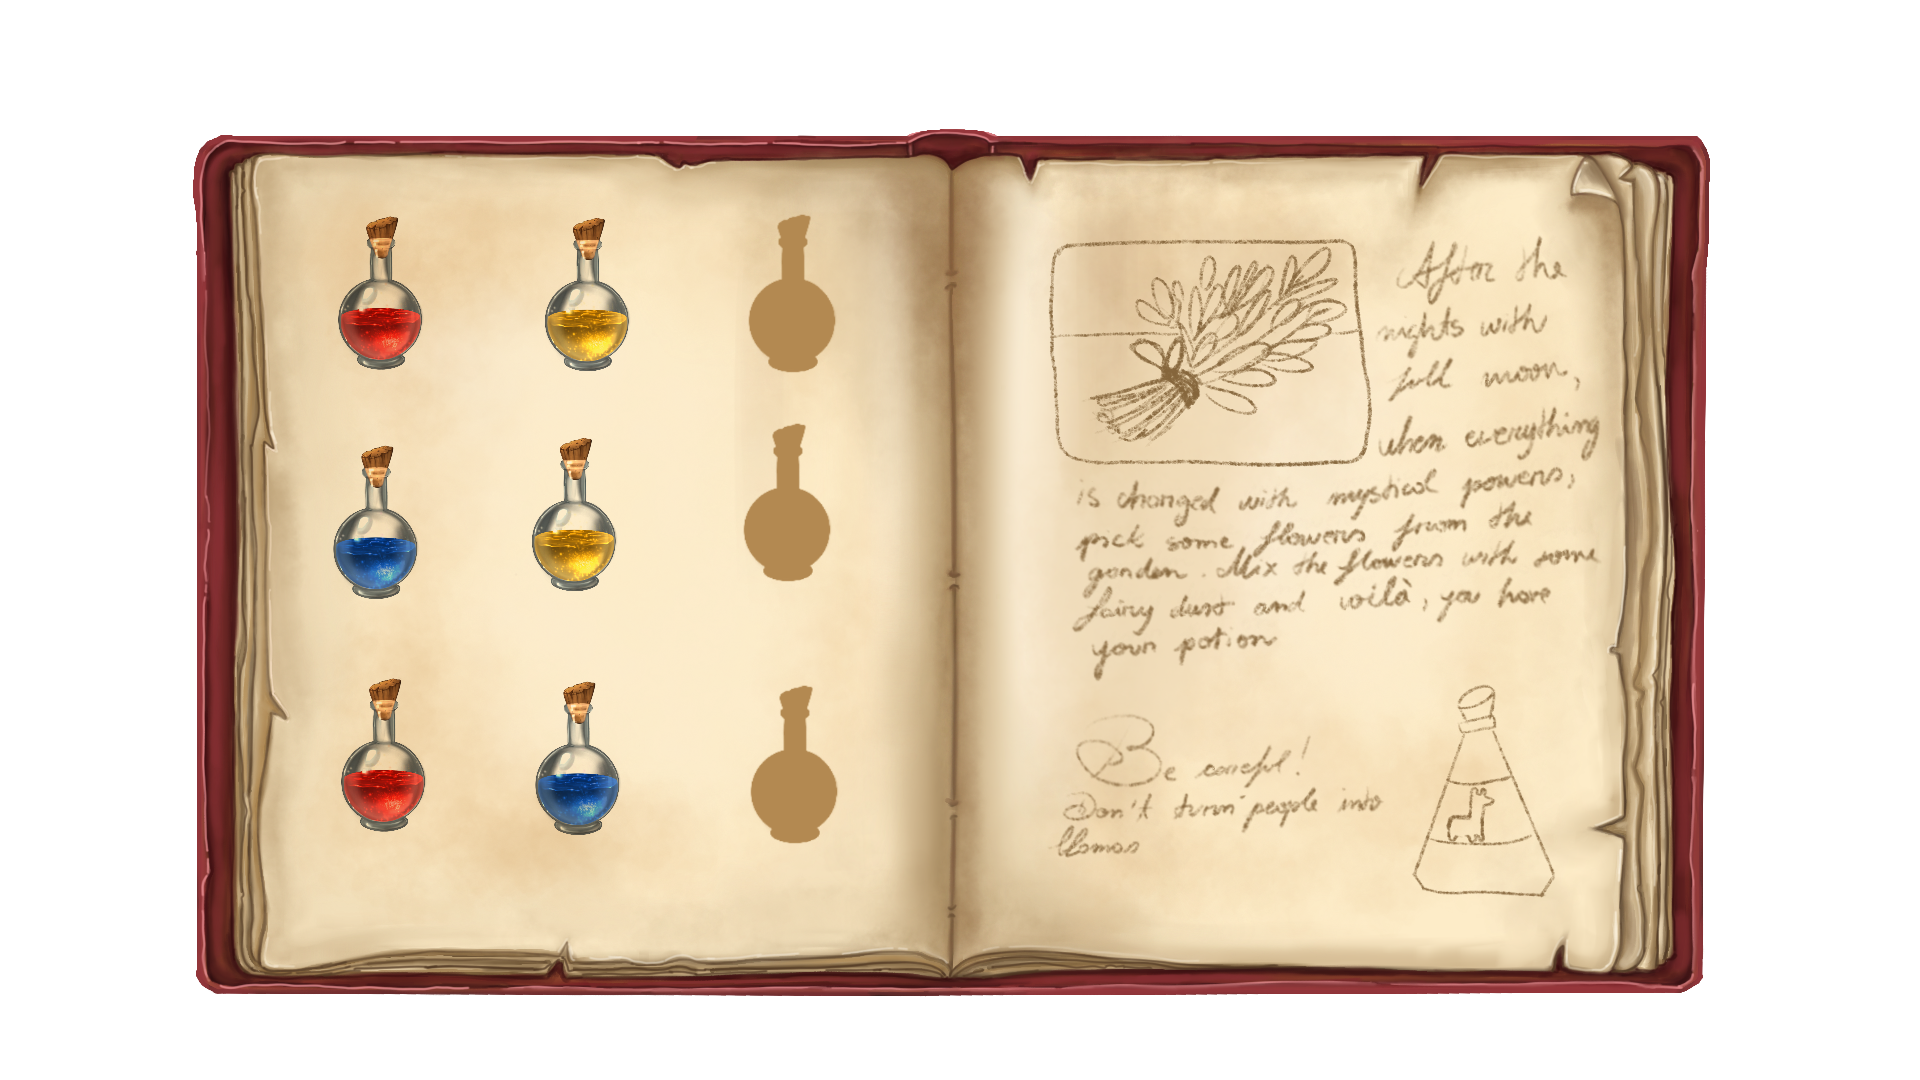 After the
nights with
full moon,
when everything
is changed with mystical powers,
pick some flowers from the
garden. Mix the flowers with some
fairy dust and voilà, you have
your potion
Be careful!
Don't turn people into
llamas